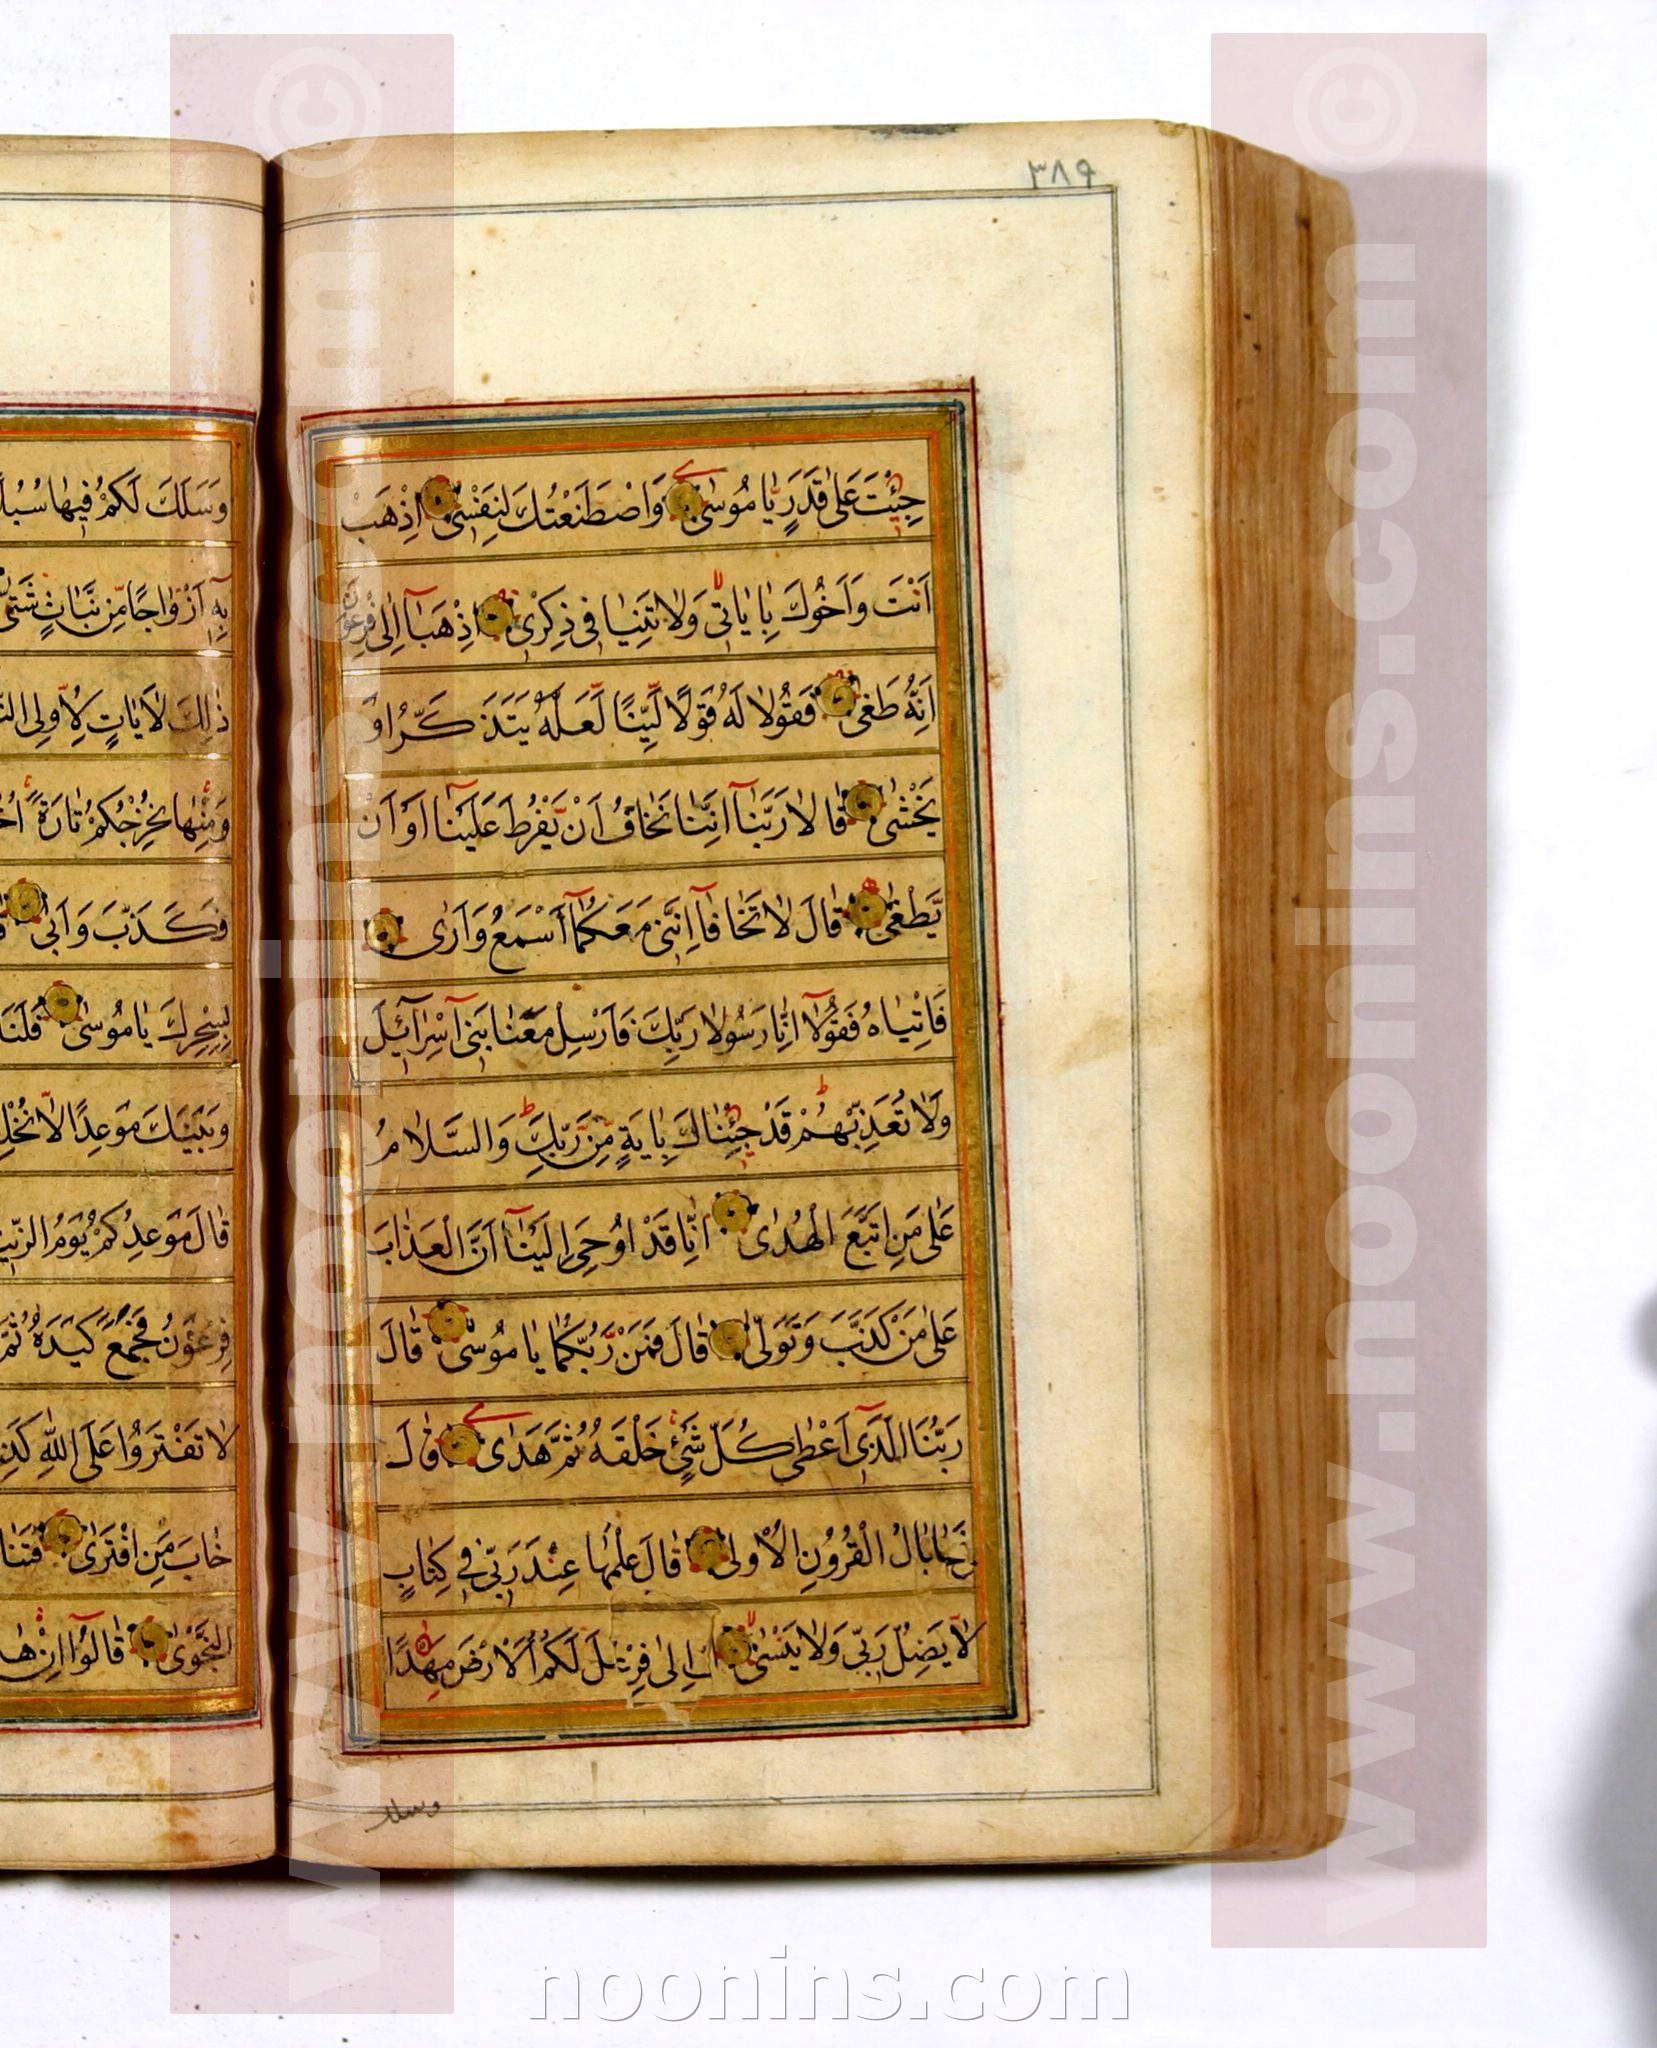 ٣٨٩
جِئْتَ عَلٰى قَدَرٍ يٰا مُوسٰى وَاصْطَنَعْتُكَ لِنَفْسٖى اِذْهَبْ
اَنْتَ وَاَخُوكَ بِاٰيٰاتٖى وَلٰا تَنِيٰا فٖى ذِكْرٖى اِذْهَبٰآ اِلٰى فِرْعَوْنَ
اِنَّهُ طَغٰى فَقُولٰا لَهُ قَوْلًا لَيِّنًا لَعَلَّهُ يَتَذَكَّرُ اَوْ
يَخْشٰى قٰالٰا رَبَّنٰآ اِنَّنٰا نَخٰافُ اَنْ يَفْرُطَ عَلَيْنٰآ اَوْ اَنْ
يَطْغٰى قٰالَ لٰا تَخٰافٰآ اِنَّنٖى مَعَكُمٰآ اَسْمَعُ وَاَرٰى
فَاْتِيٰاهُ فَقُولٰآ اِنّٰا رَسُولٰا رَبِّكَ فَاَرْسِلْ مَعَنٰا بَنٖٓى اِسْرٰآئٖلَ
وَلٰا تُعَذِّبْهُمْ قَدْ جِئْنٰاكَ بِاٰيَةٍ مِنْ رَبِّكَ وَالسَّلٰامُ
عَلٰى مَنِ اتَّبَعَ الْهُدٰى اِنّٰا قَدْ اُوحِيَ اِلَيْنٰآ اَنَّ الْعَذٰابَ
عَلٰى مَنْ كَذَّبَ وَتَوَلّٰى قٰالَ فَمَنْ رَبُّكُمٰا يٰا مُوسٰى قٰالَ
رَبُّنَا الَّذٖٓى اَعْطٰى كُلَّ شَيْءٍ خَلْقَهُ ثُمَّ هَدٰى قٰالَ
بٰالُ الْقُرُونِ الْاُولٰى قٰالَ عِلْمُهٰا عِنْدَ رَبّٖى فٖى كِتٰابٍ
لٰا يَضِلُّ رَبّٖى وَلٰا يَنْسٰى لَكُمُ الْاَرْضَ مِهٰدًا
وسلك
وَسَلَكَ لَكُمْ فٖيهٰا سُبُلًا
بِهٖٓ اَزْوٰاجًا مِنْ نَبٰاتٍ شَتّٰى
ذٰلِكَ لَاٰيٰاتٍ لِاُولِى
وَمِنْهٰا نُخْرِجُكُمْ تٰارَةً
فَكَذَّبَ وَاَبٰى
بِسِحْرِكَ يٰا مُوسٰى
وَبَيْنَكَ مَوْعِدًا لٰا
قٰالَ مَوْعِدُكُمْ يَوْمُ
فِرْعَوْنُ فَجَمَعَ كَيْدَهُ ثُمَّ
لٰا تَفْتَرُوا عَلَى اللّٰهِ
خٰابَ مَنِ افْتَرٰى
النَّجْوٰى قٰالُوٓا اِنْ
www.noonins.com ©
www.noonins.com ©
noonins.com